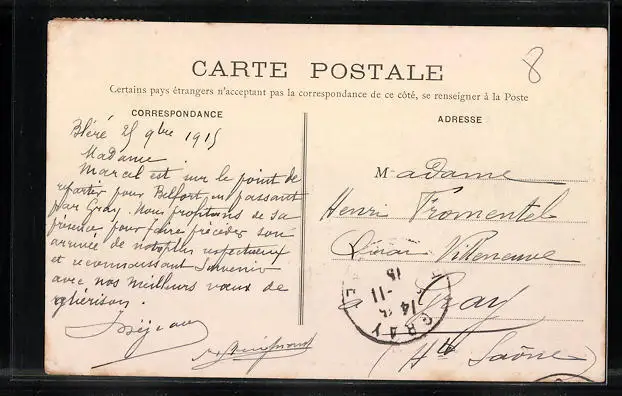 8
CARTE POSTALE
Certains pays étrangers n'acceptant pas la correspondance de ce côté, se renseigner à la Poste
CORRESPONDANCE
Bléré 25 9bre 1915
Madame
Marcel est sur le point de
repartir pour Belfort en passant
par Gray. Nous profitons de sa
présence pour faire précéder son
arrivée de nos plus respectueux
et reconnaissant souvenir
avec nos meilleurs vœux de
guérison.
ADRESSE
Madame
Henri Fromentel
Villeneuve
Gray
(Hte Saône)
GRAY
14
-11
15